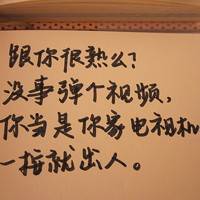 跟你很熟么?
没事弹个视频,
你当是你家电视机
一按就出人。